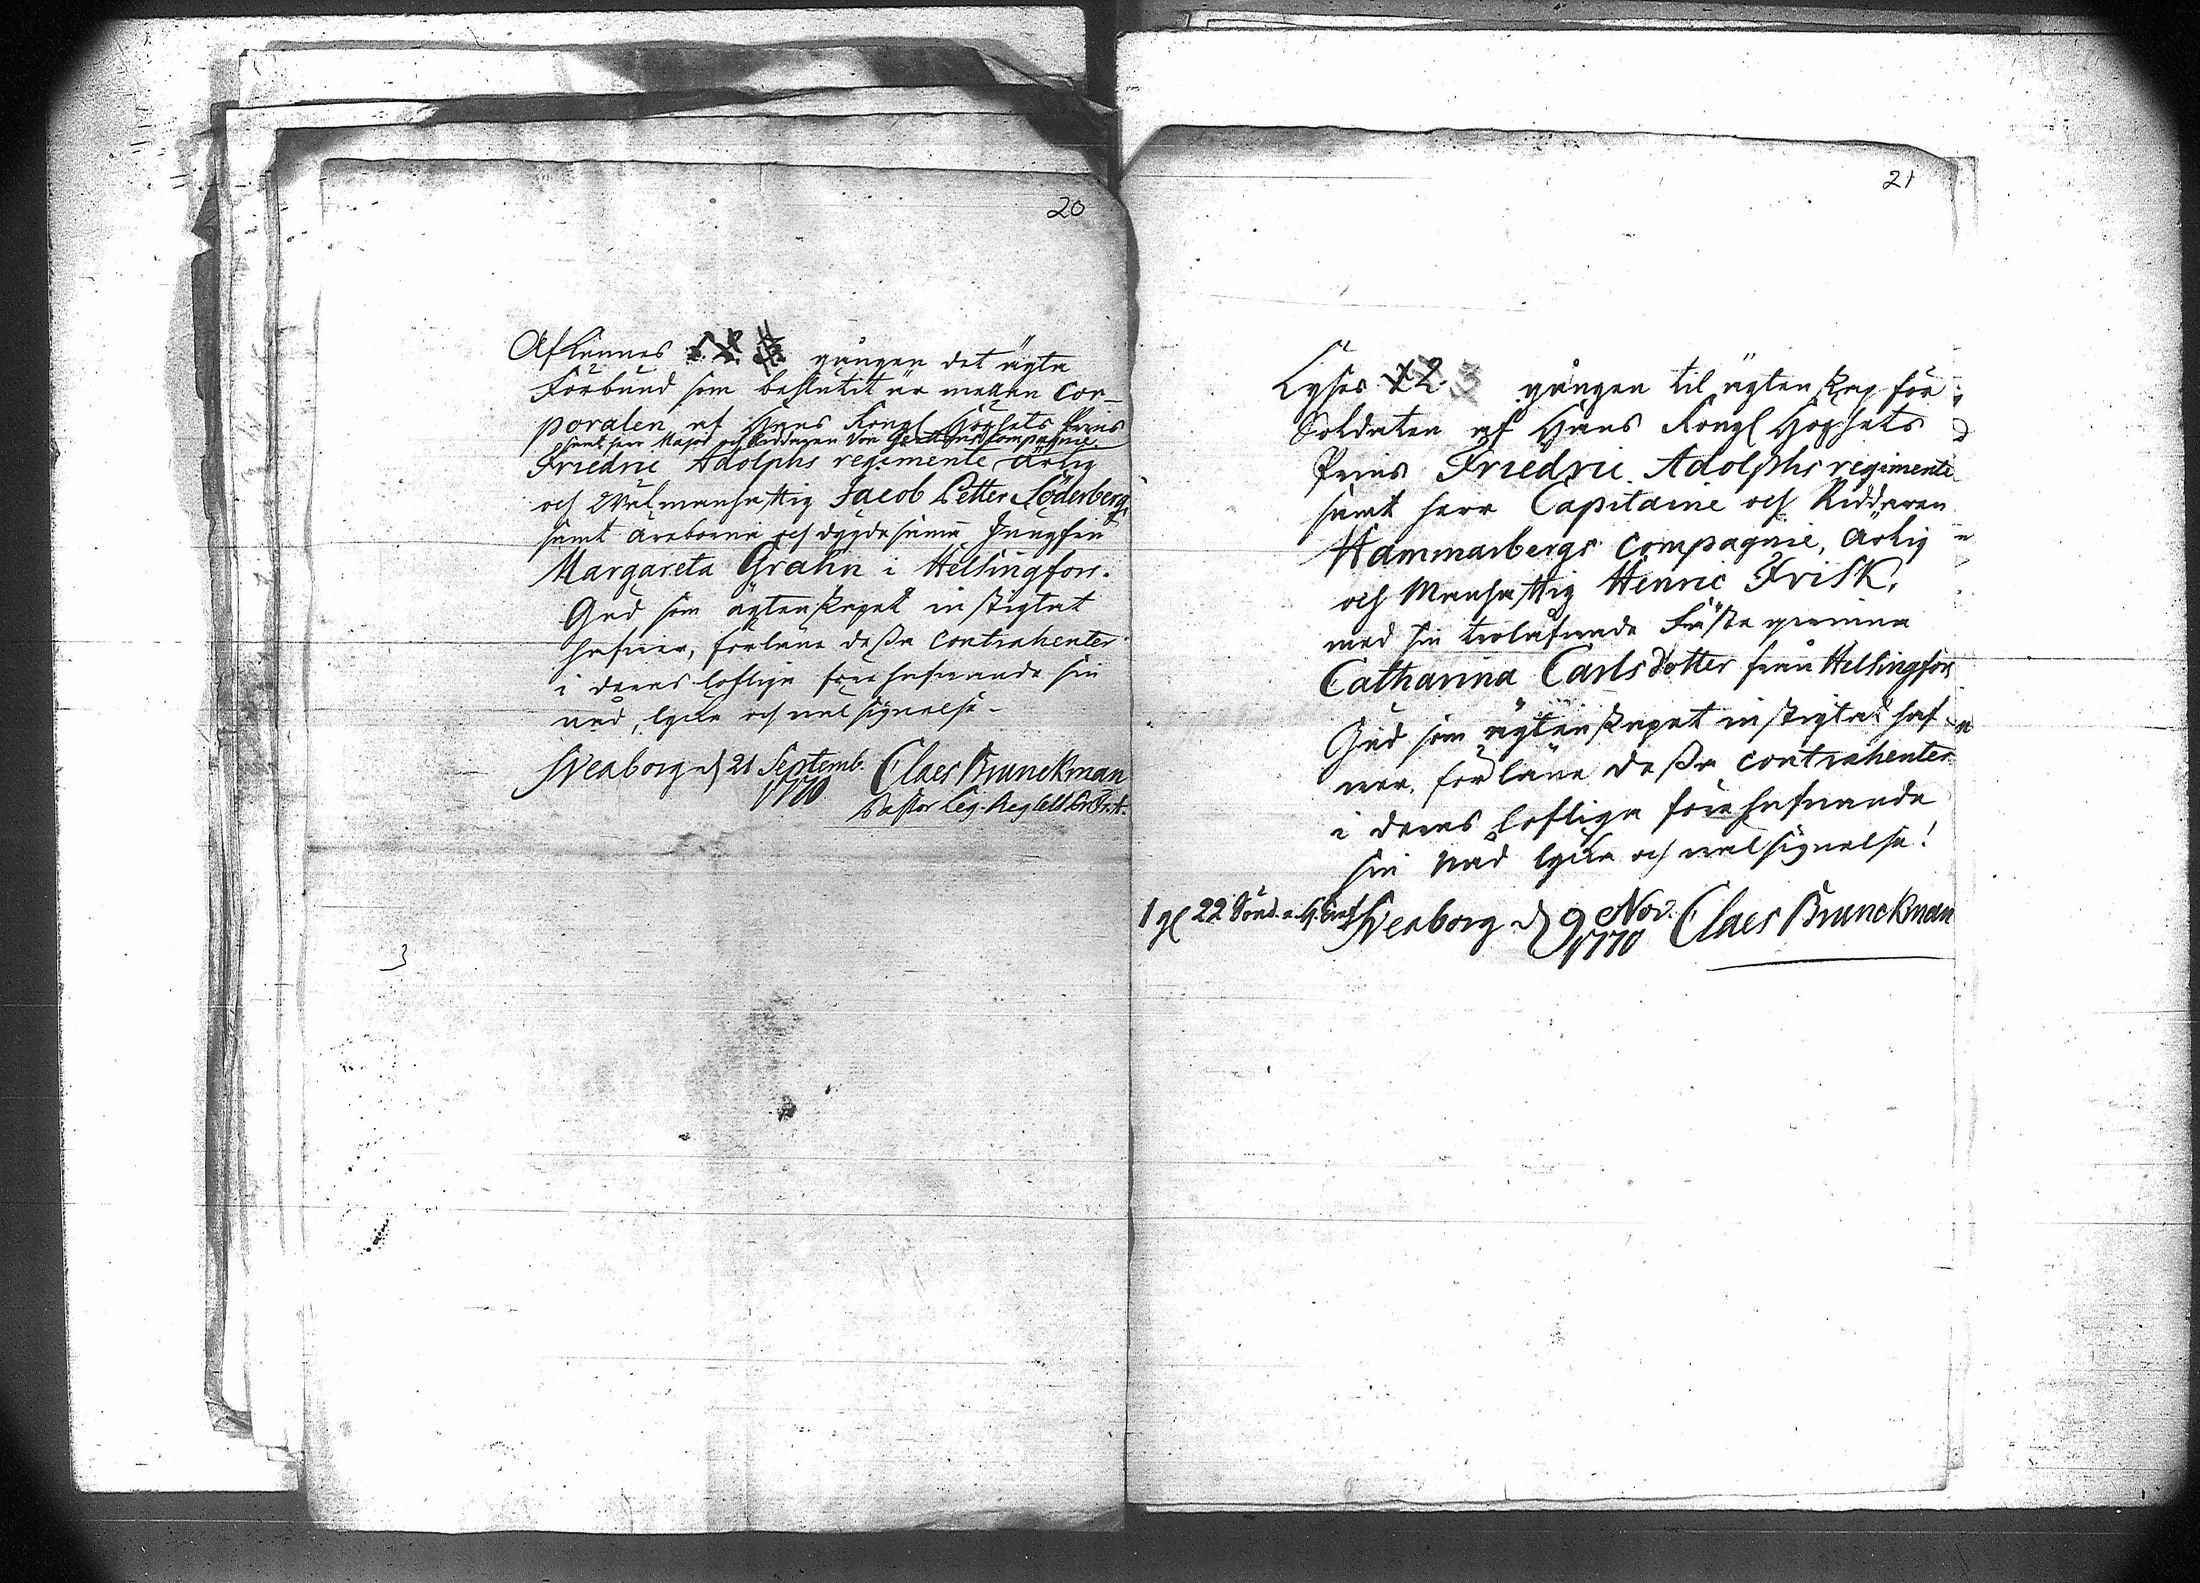 20
Afkunnes 1. 2. 3 gången det ägta
Förbund som beslutit är mellan Cor-
poralen af Hans Kongl Höghets Prins
samt herr Major och Riddaren Von Compagnie
Friedric Adolphs regimente Ärlig
och Wälmanhaftig Jacob Petter Söderberg
samt äreborna och dygdesamma Jungfru
Margareta Grahn i Helsingfors.
Gud som ägtenskapet instigtat
hafwer, förläne dessa Contrahenter
i deras loflige förehafwande sin
nåd, lycka och wälsignelse-
Sveaborg d 21 Septemb. Claes Brunckman
1770
Pastor Leg.
3
21
Lyses 1 2. 3 gången til ägtenskap för
Soldaten af Hans Kongl Höghets
Prins Friedric Adolphs regimente
samt herr Capitaine och Riddaren
Hammarbergs Compagnie, Ärlig
och Manhaftig Henric Frisk,
med sin trolåfwade Fäste qwinna
Catharina Carlsdotter från Helsingfors
Gud som ägtenskapet instigtat haf-
wer, förläne dessa contrahenter
i deras loflige förehafwande
sin Nåd lycka och wälsignelse!
1 g 22 Sönd. Sveaborg d 9 Nov. Claes Brunckman
1770